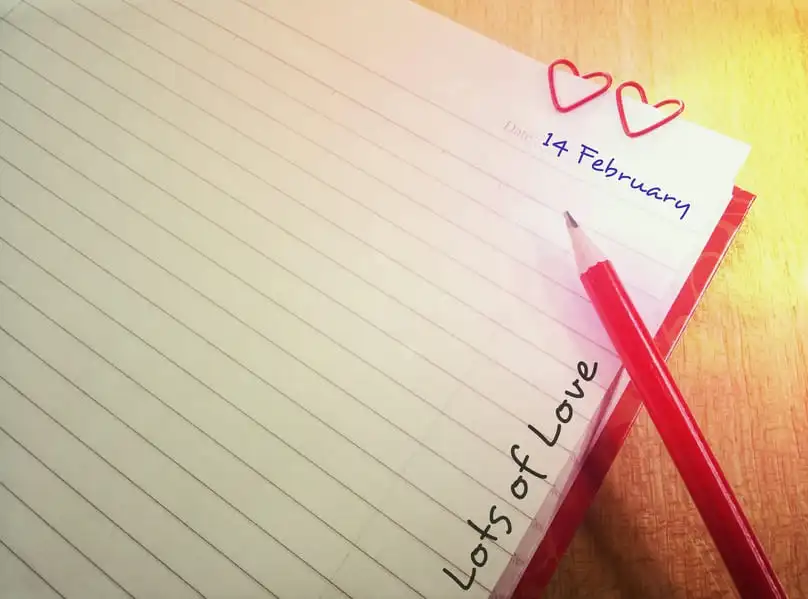 Date
14 February
Lots of Love